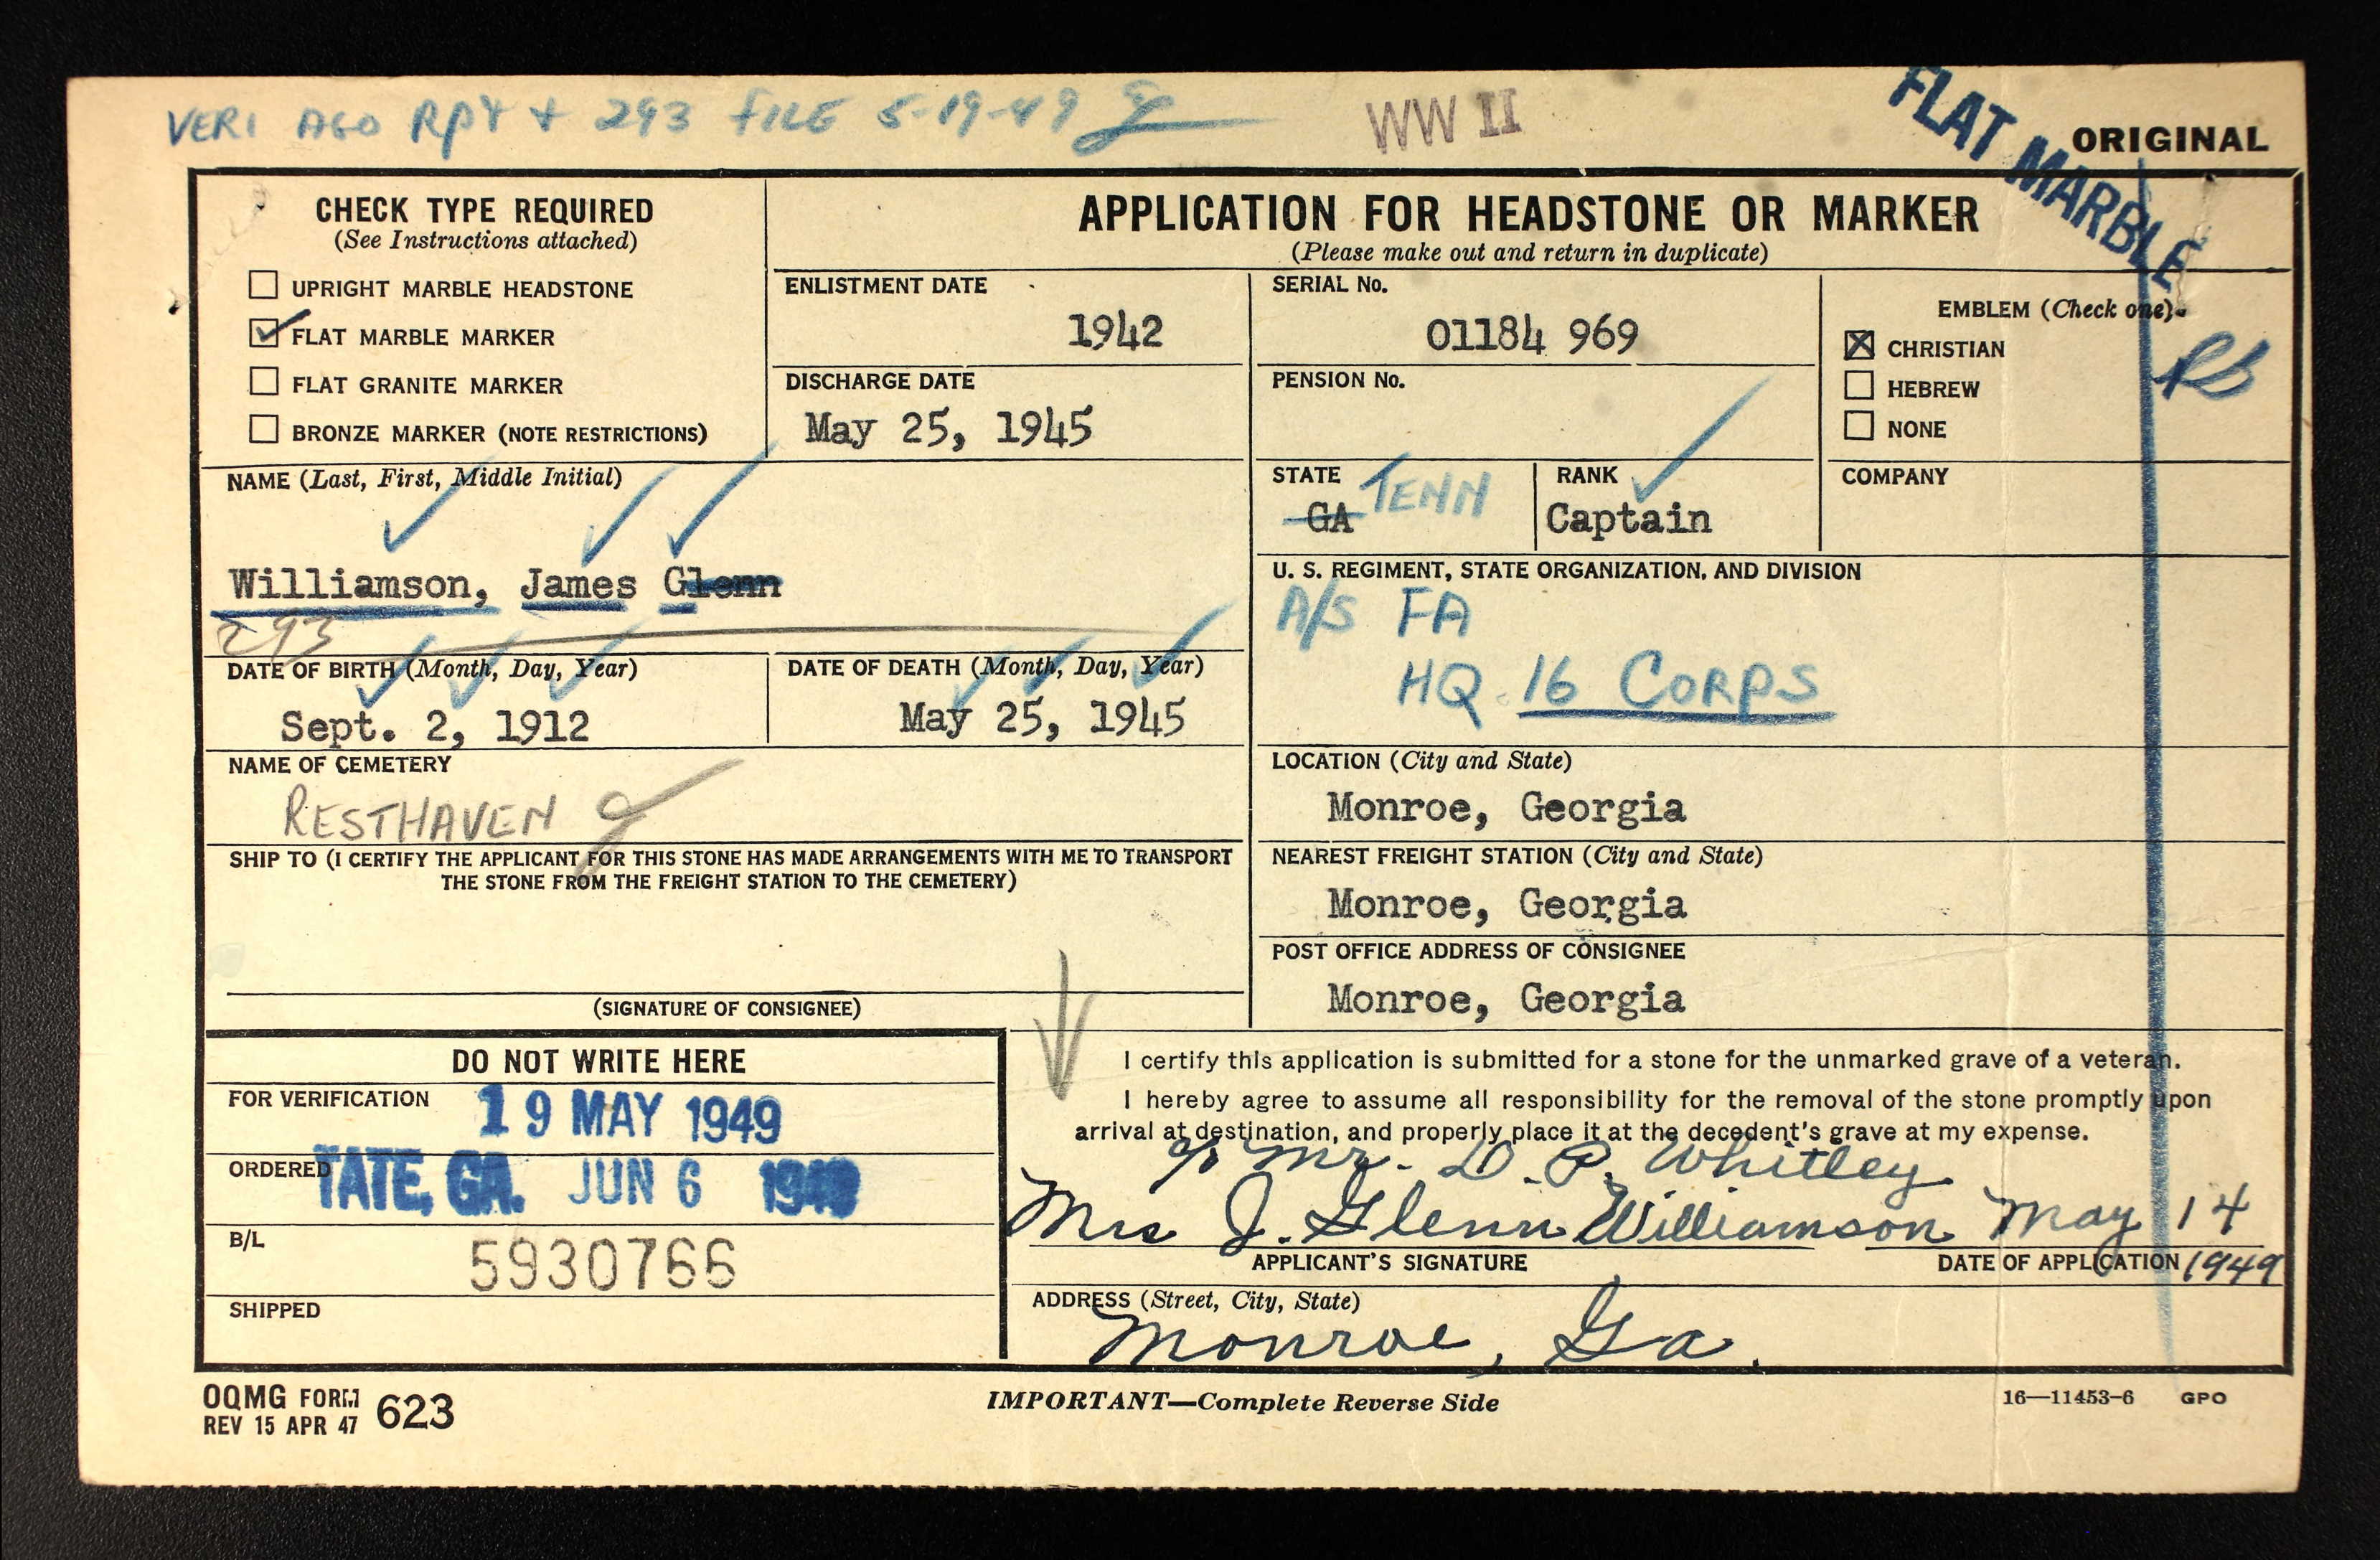 VERI AGO RPT + 293 FILE 5-19-49
WW II
FLAT MARBLE
ORIGINAL
CHECK TYPE REQUIRED
(See Instructions attached)
UPRIGHT MARBLE HEADSTONE
FLAT MARBLE MARKER
FLAT GRANITE MARKER
BRONZE MARKER (NOTE RESTRICTIONS)
APPLICATION FOR HEADSTONE OR MARKER
(Please make out and return in duplicate)
ENLISTMENT DATE
1942
DISCHARGE DATE
May 25, 1945
SERIAL No.
01184 969
PENSION No.
EMBLEM (Check one)
CHRISTIAN
HEBREW
NONE
NAME (Last, First, Middle Initial)
Williamson, James Glenn
293
STATE
GA TENN
RANK
Captain
COMPANY
U. S. REGIMENT, STATE ORGANIZATION, AND DIVISION
A/S FA
HQ 16 CORPS
DATE OF BIRTH (Month, Day, Year)
Sept. 2, 1912
DATE OF DEATH (Month, Day, Year)
May 25, 1945
NAME OF CEMETERY
RESTHAVEN
LOCATION (City and State)
Monroe, Georgia
SHIP TO (I CERTIFY THE APPLICANT FOR THIS STONE HAS MADE ARRANGEMENTS WITH ME TO TRANSPORT
THE STONE FROM THE FREIGHT STATION TO THE CEMETERY)
(SIGNATURE OF CONSIGNEE)
NEAREST FREIGHT STATION (City and State)
Monroe, Georgia
POST OFFICE ADDRESS OF CONSIGNEE
Monroe, Georgia
DO NOT WRITE HERE
FOR VERIFICATION
19 MAY 1949
ORDERED
TATE, GA. JUN 6 1949
B/L
5930766
SHIPPED
I certify this application is submitted for a stone for the unmarked grave of a veteran.
I hereby agree to assume all responsibility for the removal of the stone promptly upon
arrival at destination, and properly place it at the decedent's grave at my expense.
c/o Mr. D. P. Whitley
Mrs J. Glenn Williamson May 14
1949
APPLICANT'S SIGNATURE
DATE OF APPLICATION
ADDRESS (Street, City, State)
Monroe, Ga.
OQMG FORM 623
REV 15 APR 47
IMPORTANT—Complete Reverse Side
16—11453-6 GPO